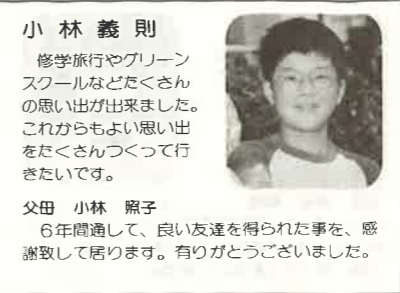 小林義則
修学旅行やグリーン
スクールなどたくさん
の思い出が出来ました。
これからもよい思い出
をたくさんつくって行
きたいです。
父母　小林　照子
６年間通して、良い友達を得られた事を、感
謝致して居ります。有りがとうございました。